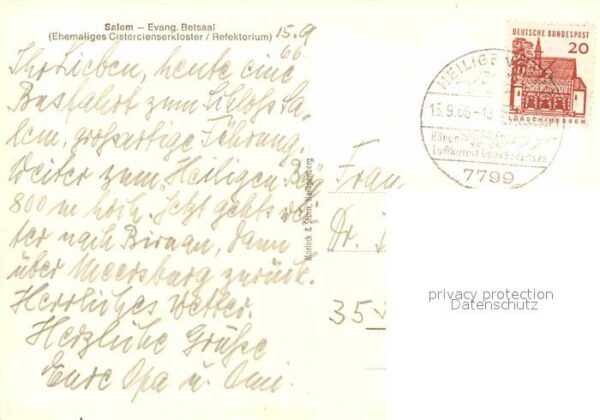 Salem – Evang. Betsaal
(Ehemaliges Cistercienserkloster / Refektorium)
15.9
66
Ihr Lieben, heute eine
Busfahrt zum Schloß Sa-
lem, großartige Führung.
Weiter zum "Heiligen Be
800 m hoch. Jetzt gehts wei
ter nach Birnau, dann
über Meersburg zurück.
Herrliches Wetter.
Herzliche Grüße
Eure Opa u. Omi.
Morlock & Stirn, Heiligenberg
DEUTSCHE BUNDESPOST
20
LORSCH/HESSEN
HEILIGE
15.9.66-18
Höhen
Luftkurort über Bodensee
7799
Frau
Dr.
35
privacy protection
Datenschutz